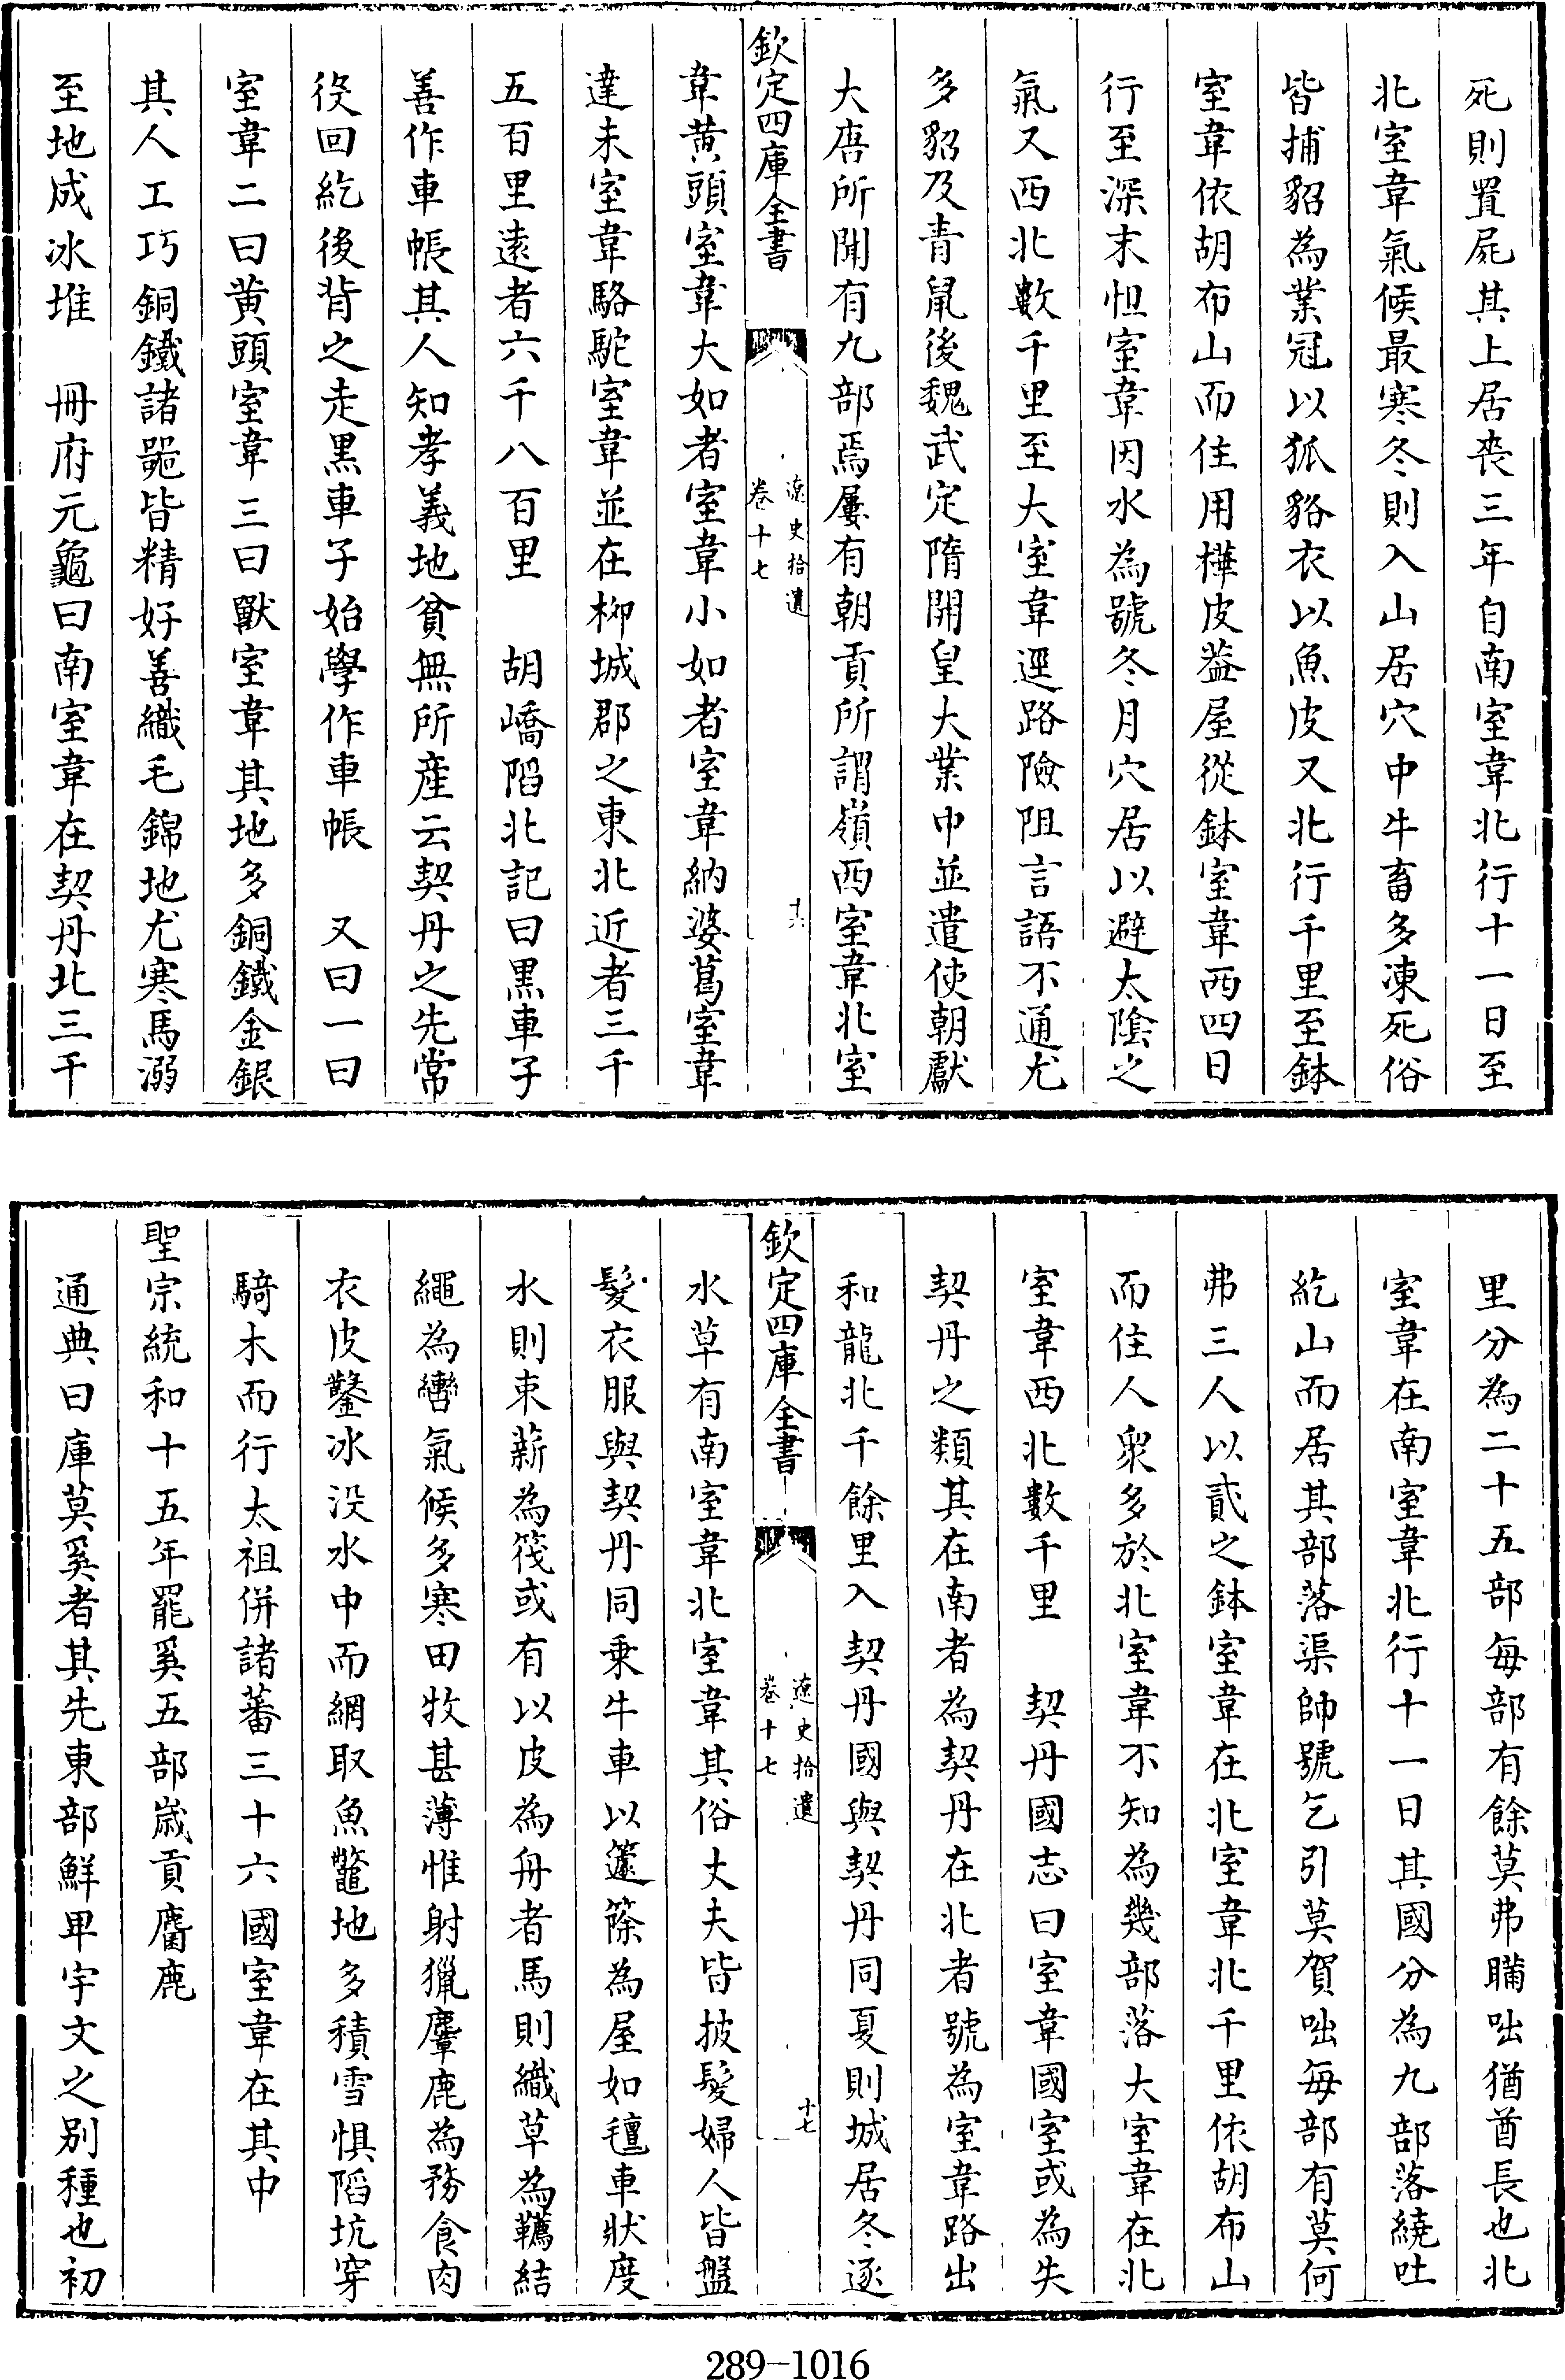 死則置屍其上居喪三年自南室韋北行十一日至
北室韋氣候最寒冬則入山居穴中牛畜多凍死俗
皆捕貂為業冠以狐貉衣以魚皮又北行千里至鉢
室韋依胡布山而住用樺皮葢屋從鉢室韋西四日
行至深末怛室韋因水為號冬月穴居以避太隂之
氣又西北數千里至大室韋逕路險阻言語不通尤
多貂及青䑕後魏武定隋開皇大業中並遣使朝獻
大唐所聞有九部焉屢有朝貢所謂嶺西室韋北室
欽定四庫全書
遼史拾遺
卷十七
十六
韋黄頭室韋大如者室韋小如者室韋納婆萵室韋
達末室韋駱駝室韋並在柳城郡之東北近者三千
五百里遠者六千八百里　胡嶠陷北記曰黒車子
善作車帳其人知孝義地貧無所產云契丹之先常
役回紇後背之走黒車子始學作車帳　又曰一曰
室韋二曰黄頭室韋三曰獸室韋其地多銅鐵金銀
其人工巧銅鐵諸器皆精好善織毛錦地尤寒馬溺
至地成冰堆　冊府元龜曰南室韋在契丹北三千
里分為二十五部每部有餘莫弗瞞咄猶酋長也北
室韋在南室韋北行十一日其國分為九部落繞吐
紇山而居其部落渠帥號乞引莫賀咄每部有莫何
弗三人以貳之鉢室韋在北室韋北千里依胡布山
而住人衆多於北室韋不知為幾部落大室韋在北
室韋西北數千里　契丹國志曰室韋國室或為失
契丹之類其在南者為契丹在北者號為室韋路出
和龍北千餘里入契丹國與契丹同夏則城居冬逐
欽定四庫全書
遼史拾遺
卷十七
十七
水草有南室韋北室韋其俗丈夫皆披髮婦人皆盤
髮衣服與契丹同乗牛車以籧篨為屋如氊車狀度
水則束薪為筏或有以皮為舟者馬則織草為韉結
繩為轡氣候多寒田牧甚薄惟射獵麞鹿為務食肉
衣皮鑿冰没水中而網取魚鼈地多積雪惧陷坑穽
騎木而行太祖併諸蕃三十六國室韋在其中
聖宗統和十五年罷奚五部歳貢麕鹿
通典曰庫莫奚者其先東部鮮卑宇文之别種也初
289-1016